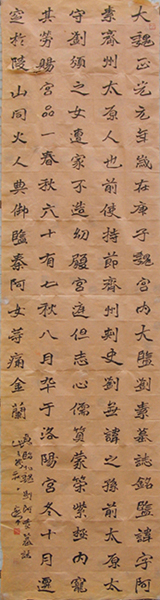 大魏正光元年歲在庚子魏宮內大監劉素墓誌銘監諱字阿
素齊州太原人也前使持節齊州刺史劉無諱之前太原太
守劉頒之女遭家不造幼履宮庭但志心儒質蒙策紫極內寵
其勞賜宮品一春秋六十有七秋八月卒于洛陽宮冬十月遷
窆於陵山同火人典御監秦阿女等痛金蘭